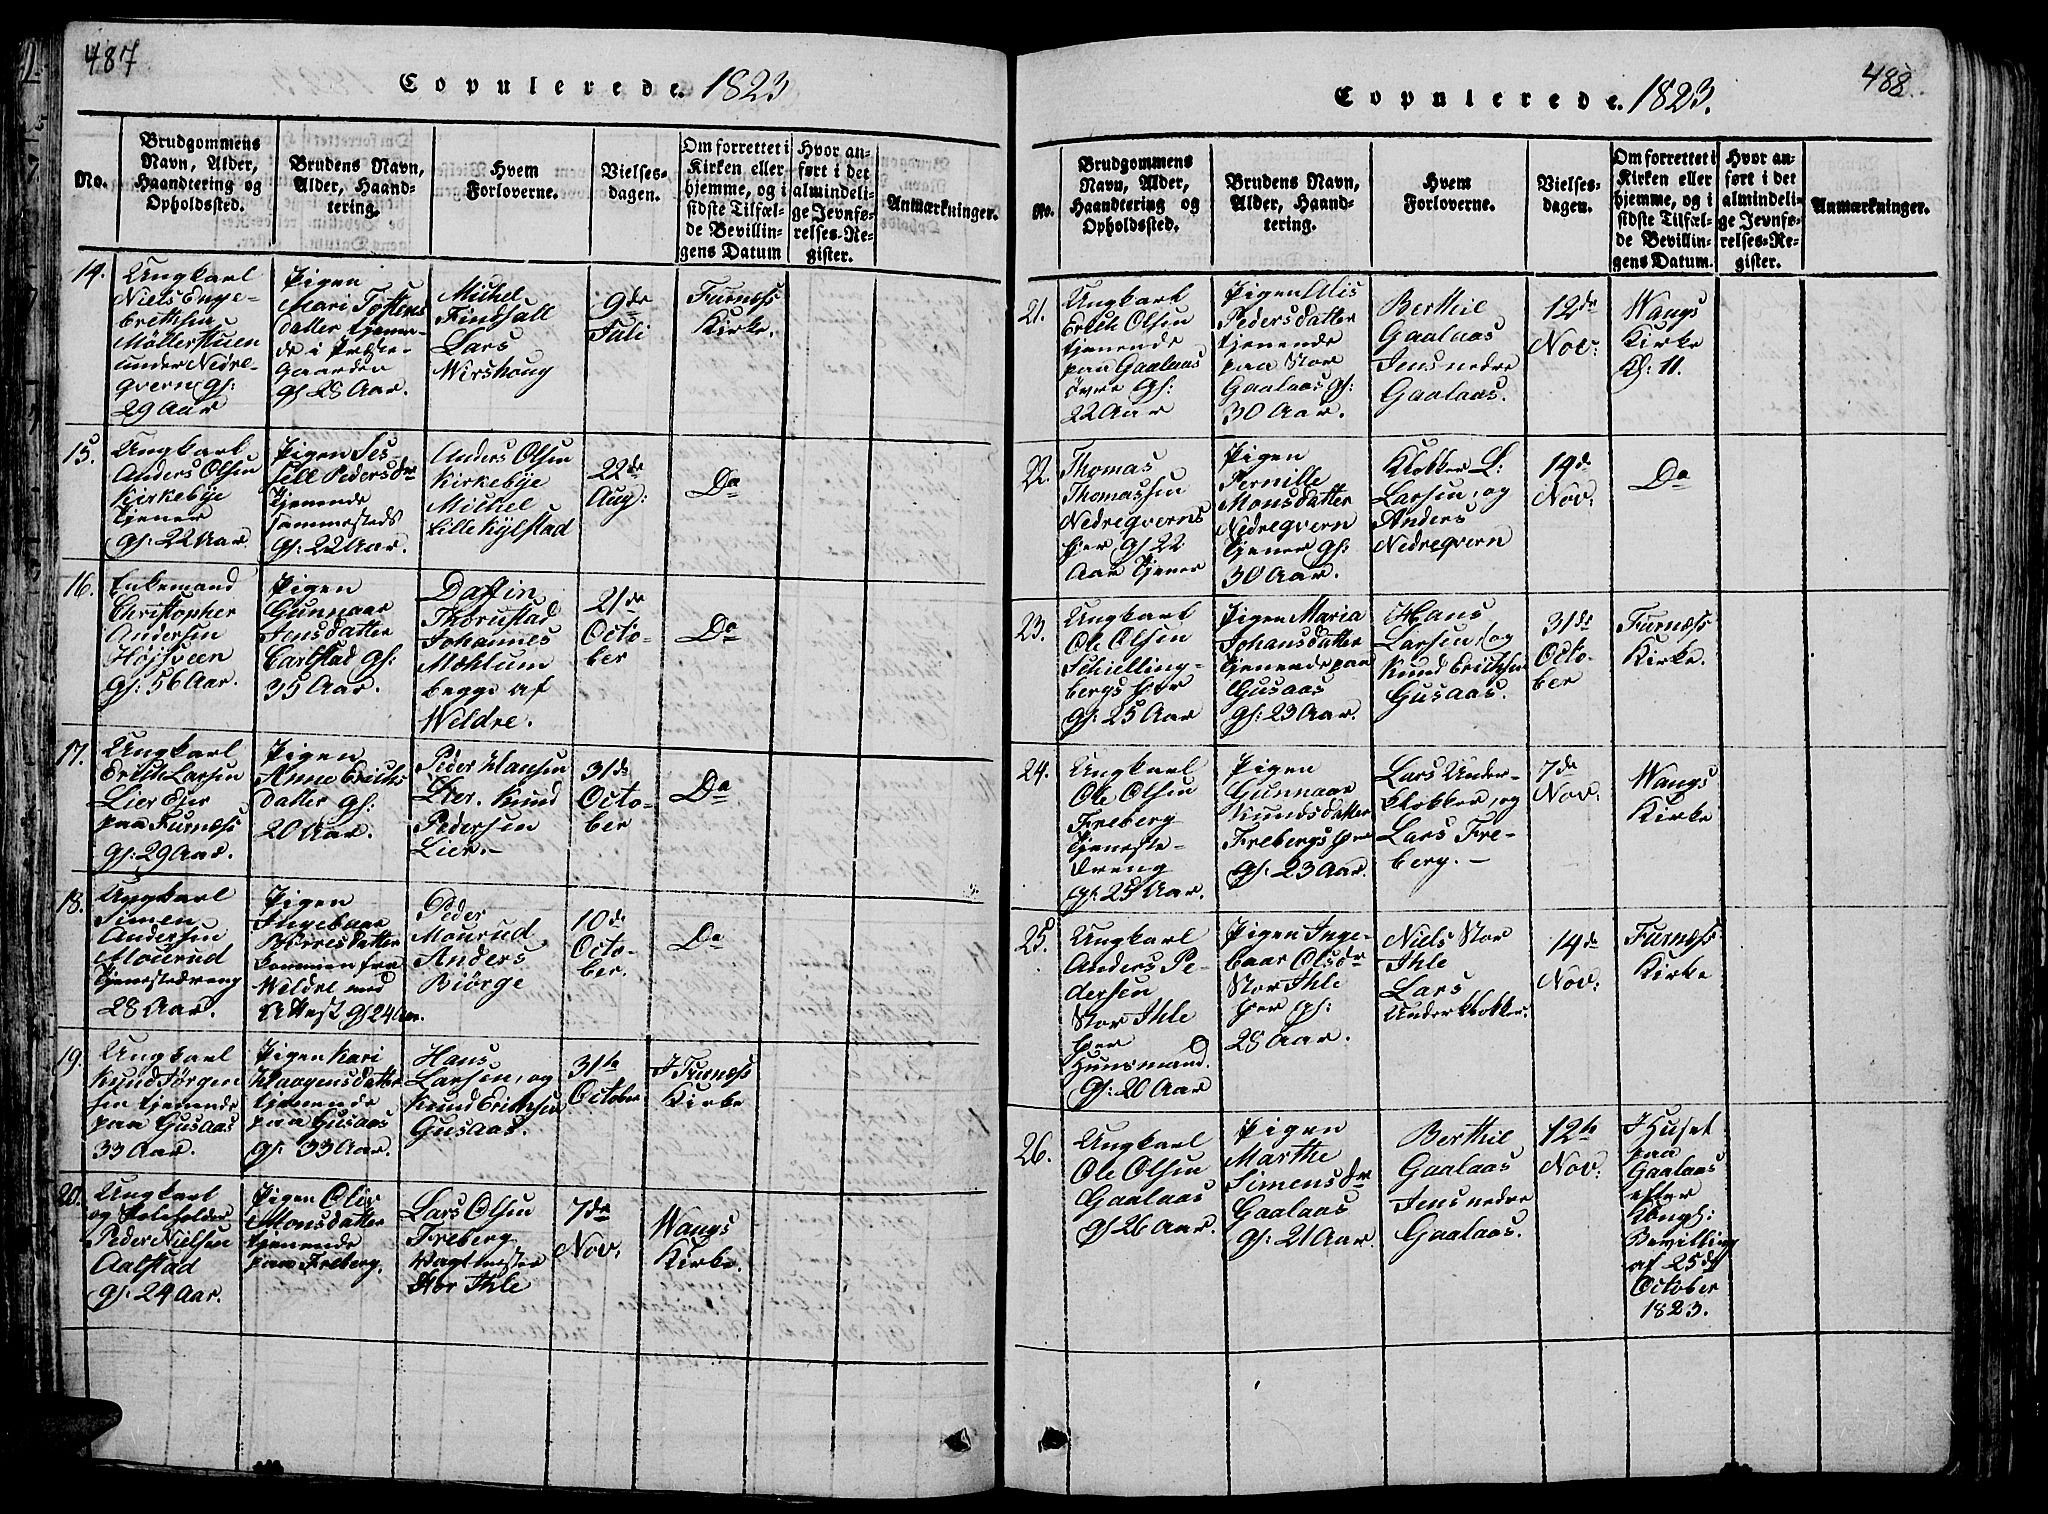 487
Copulerede. 1823
No.
Brudgommens
Navn, Alder,
Haandtering og
Opholdssted.
Brudens Navn,
Alder, Haand-
tering.
Hvem
Forloverne.
Vielses-
dagen.
Om forrettet i
Kirken eller
hjemme, og i
sidste Tilfæl-
de Bevillin-
gens Datum
Hvor an-
ført i det
almindeli-
ge Jevnfø-
relses-Re-
gister.
Anmærkninger.
14.
Ungkarl
Niels Enge-
brethsen
Möllerstuen
under Nedre-
qvern gl:
29 Aar
Pigen
Mari Tostens
datter tjenen-
de i Præste-
gaarden
gl 28 Aar.
Michel
Findsall
Lars
Wirshoug
9de
Juli
Furnæss
Kirke.
15.
Ungkarl
Anders Olsen
Kirkebye
Tjener
gl: 22 Aar
Pigen Ses-
sell Pedersdr
tjenende
sammesteds
gl: 22 Aar.
Anders Olsen
Kirkebye
Michel
Lille Kylstad
22de
Aug:
Do
16.
Enkemand
Christopher
Andersen
Højsveen
gl: 56 Aar.
Pigen
Gunnaar
Jensdatter
Carlstad gl:
35 Aar.
Daffin
Thorustad
Johannes
Mæhlum
begge af
Weldre.
21de
Octo-
ber
Do
17.
Ungkarl
Erich Larsen
Lier Ejer
paa Furnæss
gl: 29 Aar.
Pigen
Anne Erichs
datter gl:
20 Aar.
Peder Hansen
Lier. Knud
Pedersen
Lier.-
31de
Octo-
ber
Do
18.
Ungkarl
Simen
Andersen
Mourud
Tjenestedreng
28 Aar.
Pigen
Ingebaar
Börresdatter
kommen fra
Weldre med
Attest gl 24 Aar.
Peder
Mourud
Anders
Biörge
10de
Octo-
ber.
Do
19.
Ungkarl
Knud Jörgen
sen tjenende
paa Gusaas
33 Aar.
Pigen Kari
Haagensdatter
tjenende
paa Gusaas
gl: 33 Aar.
Hans
Larsen, og
Knud Erichsen
Gusaas.
31te
October
I Furnæss
Kirke
20.
Ungkarl
og
Peder Nielsen
Aalstad
gl: 24 Aar.
Pigen Oliv
Monsdatter
tjenende
paa Freberg.
Lars Olsen
Freberg
Vagtmester
Stor Ihle
7de
Nov.
Wangs
Kirke.
488.
Copulerede. 1823.
No.
Brudgommens
Navn, Alder,
Haandtering og
Opholdssted.
Brudens Navn,
Alder, Haand-
tering.
Hvem
Forloverne.
Vielses-
dagen.
Om forrettet i
Kirken eller
hjemme, og i
sidste Tilfæl-
de Bevillin-
gens Datum.
Hvor an-
ført i det
almindeli-
ge Jevnfø-
relses-Re-
gister.
Anmærkninger.
21.
Ungkarl
Erich Olsen
tjenende
paa Gaalaas
övre gl:
22 Aar
Pigen Alis
Pedersdatter
tjenende
paa Stor
Gaalaas gl:
30 Aar.
Berthil
Gaalaas
Jens nedre
Gaalaas.
12de
Nov:
Wangs
Kirke
Kl: 11.
22.
Thomas
Thomassen
Nedreqverns
Eier gl 22
Aar Tjener
Pigen
Pernille
Monsdatter
Nedreqvern
Tjener gl:
30 Aar.
Klokker L:
Larsen, og
Anders
Nedreqvern
14de
Nov:
Do
23.
Ungkarl
Ole Olsen
Schielling-
bergs Eier
gl: 25 Aar
Pigen Maria
Johansdatter
tjenende paa
Gusaas
gl: 23 Aar.
Hans
Larsen, og
Knud Erichsen
Gusaas.
31de
Octo-
ber
Furnæss
Kirke.
24.
Ungkarl
Ole Olsen
Freberg
Tjeneste-
dreng
gl: 25 Aar.
Pigen
Gunnaar
Knudsdatter
Frebergs Eier
gl: 23 Aar.
Lars Under-
klokker, og
Lars Fre-
berg. -
7de
Nov:
Wangs
Kirke
25.
Ungkarl
Anders Pe-
dersen
Stor Ihle
Eier
Huusmand.
gl: 20 Aar
Pigen Inge-
baar Olsdr
Stor Ihle
Eier gl:
28 Aar.
Niels Stor
Ihle
Lars
Underklokker.
14de
Nov:
Furnæss
Kirke
26.
Ungkarl
Ole Olsen
Gaalaas
gl 26 Aar.
Pigen
Marthe
Simensdr
Gaalaas
gl: 21 Aar.
Berthil
Gaalaas
Jens nedre
Gaalaas.
12te
Nov:
I Huset
paa
Gaalaas
efter
Kongl:
Bevilling
af 25de
October
1823.